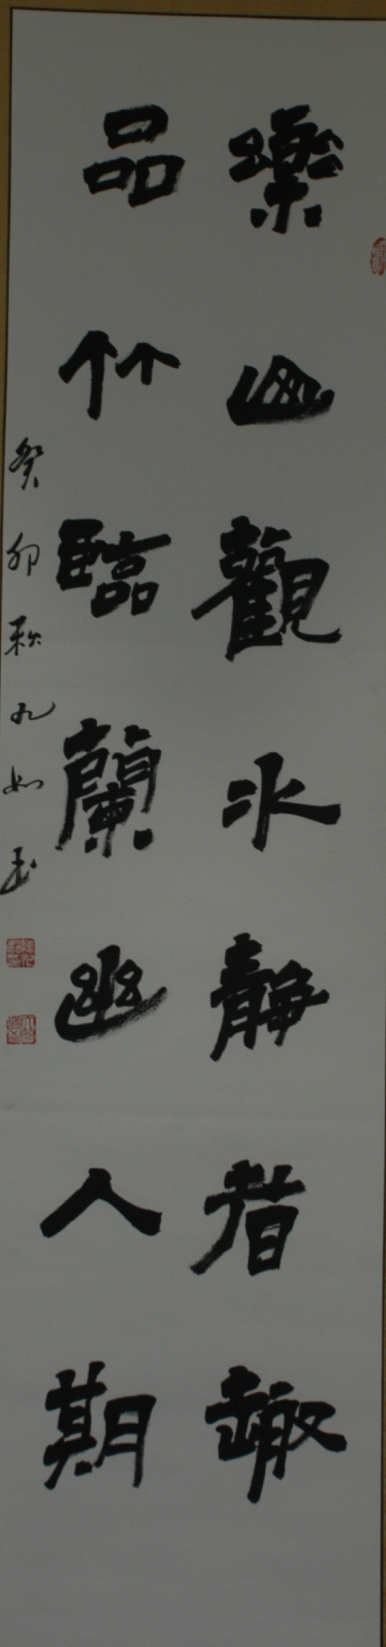 樂山觀水靜者趣
品竹臨蘭幽人期
癸卯秋九如玉